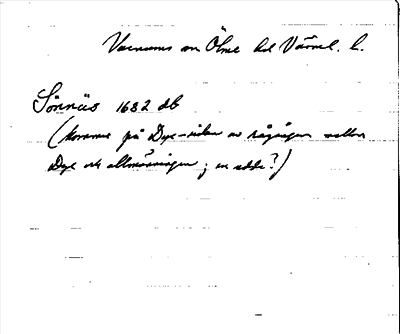 Varnums sn Ölme hd Värml. l.
Sörnäs 1682 db
(kommer på Dye-sidan av rågången mellan
Dye och allmänningen; en udde?)